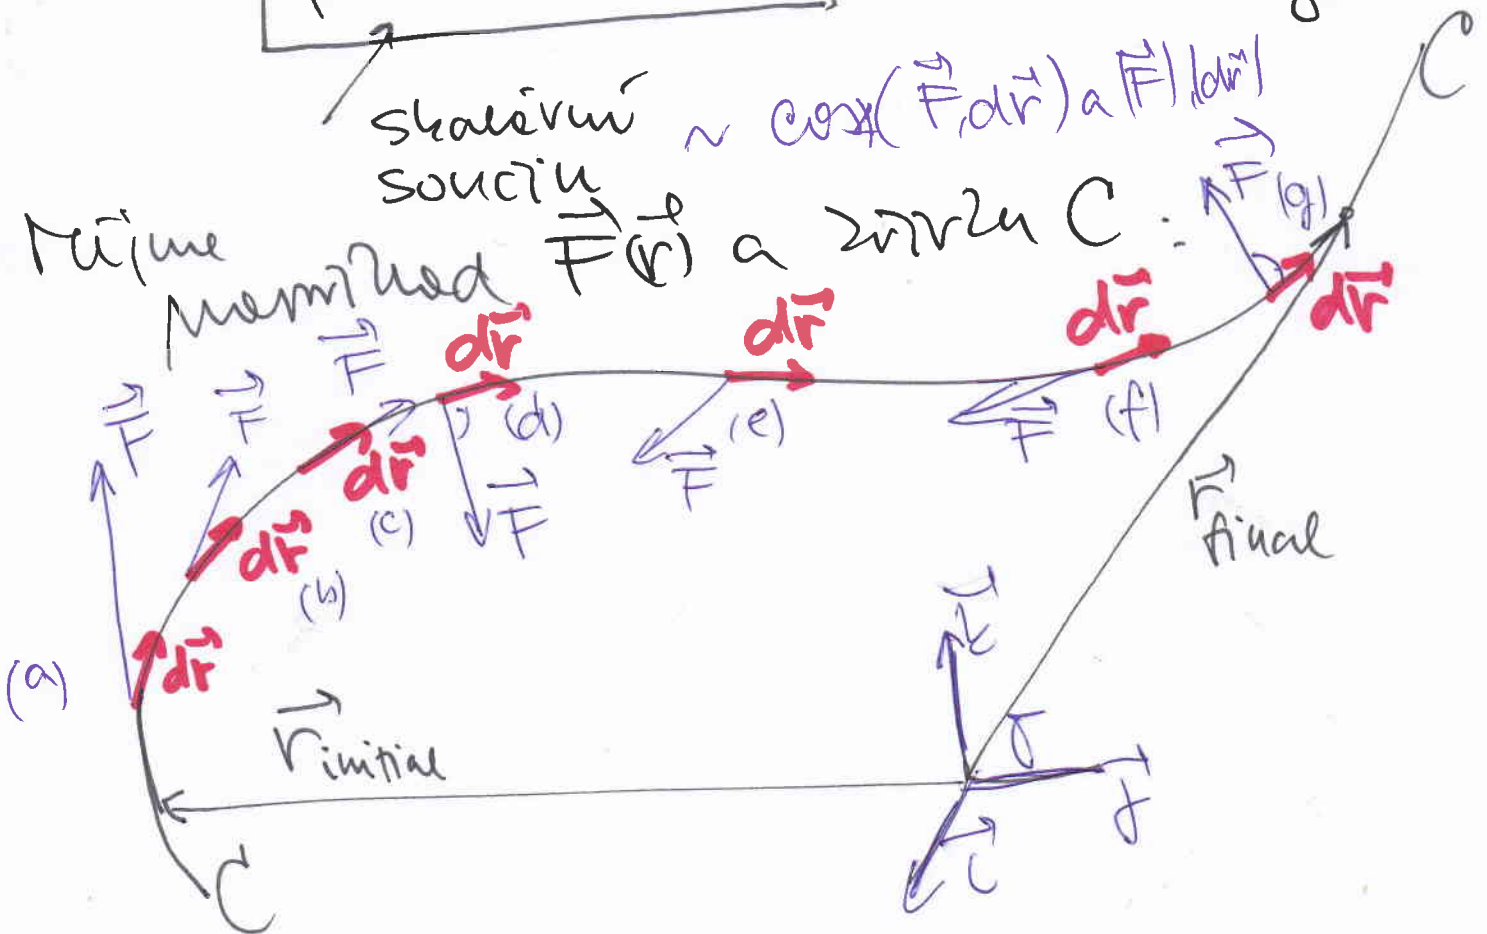 skalární ~ cos∢(F⃗,dr⃗) a |F⃗|,|dr⃗|
součin
Mějme
například F⃗(r⃗) a křivku C :
C
F⃗ (g)
dr⃗
dr⃗
dr⃗
dr⃗
F⃗
F⃗
F⃗
(d)
(e)
(f)
F⃗
F⃗
F⃗
dr⃗
(c)
dr⃗
(b)
(a)
dr⃗
r⃗ final
r⃗ initial
k⃗
j⃗
i⃗
C